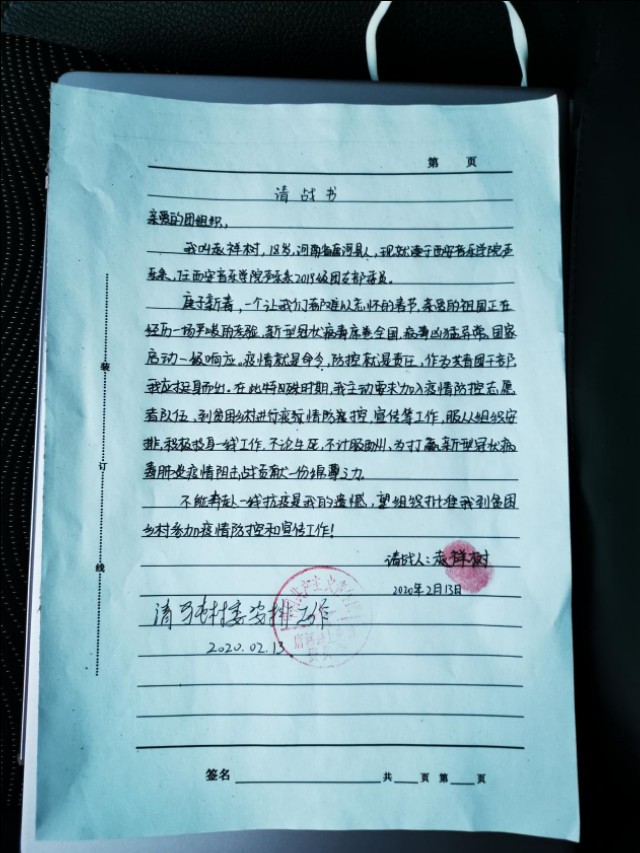 第 页
请战书
亲爱的团组织，
我叫袁祥树，18岁，河南省唐河县人，现就读于西安音乐学院声
乐系，任西安音乐学院声乐系2019级团支部委员。
庚子新春，一个让我们都难以忘怀的春节，亲爱的祖国正在
经历一场严峻的考验，新型冠状病毒席卷全国，病毒凶猛异常，国家
启动一级响应。疫情就是命令，防控就是责任，作为共青团干部，
我应挺身而出。在此特殊时期，我主动要求加入疫情防控志愿
者队伍，到贫困乡村进行疫情防控，宣传等工作，服从组织安
排，积极投身一线工作，不论生死，不计报酬，为打赢新型冠状病
毒肺炎疫情阻击战贡献一份绵薄之力。
不能奔赴一线抗疫是我的遗憾，望组织批准我到贫困
乡村参加疫情防控和宣传工作！
请战人：袁祥树
2020年2月13日
请 村委安排工作
2020.02.13
装
订
线
签名 共 页 第 页